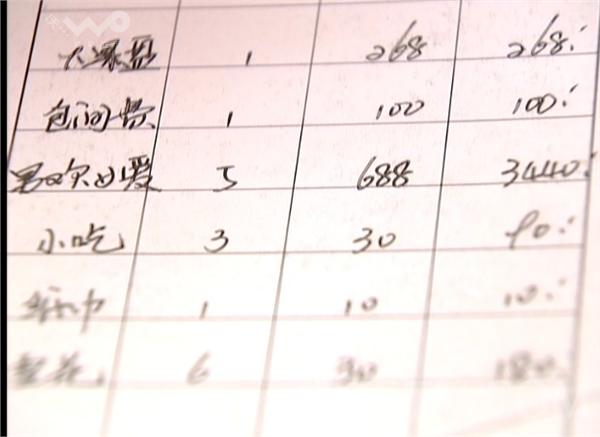 wo
大果盘 1 268 268.-
包间费 1 100 100.-
男欢女爱 5 688 3440.-
小吃 3 30 90.-
纸巾 1 10 10.-
6 30 180.-